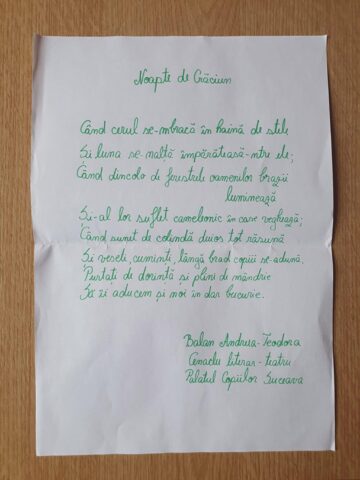 Noapte de Crăciun
Când cerul se-mbracă în haină de stele
Și luna se-nalță împărăteasă-ntre ele;
Când dincolo de ferestrele oamenilor brazii
luminează
Și-al lor suflet cameleonic în care veghează;
Când sunet de colindă duios tot răsună
Și veseli, cuminți, lângă brad copiii se-adună,
Purtați de dorință și plini de mândrie
Să îi aducem și noi în dar bucurie.
Balan Andreea-Teodora
Cenaclu literar-teatru
Palatul Copiilor Suceava